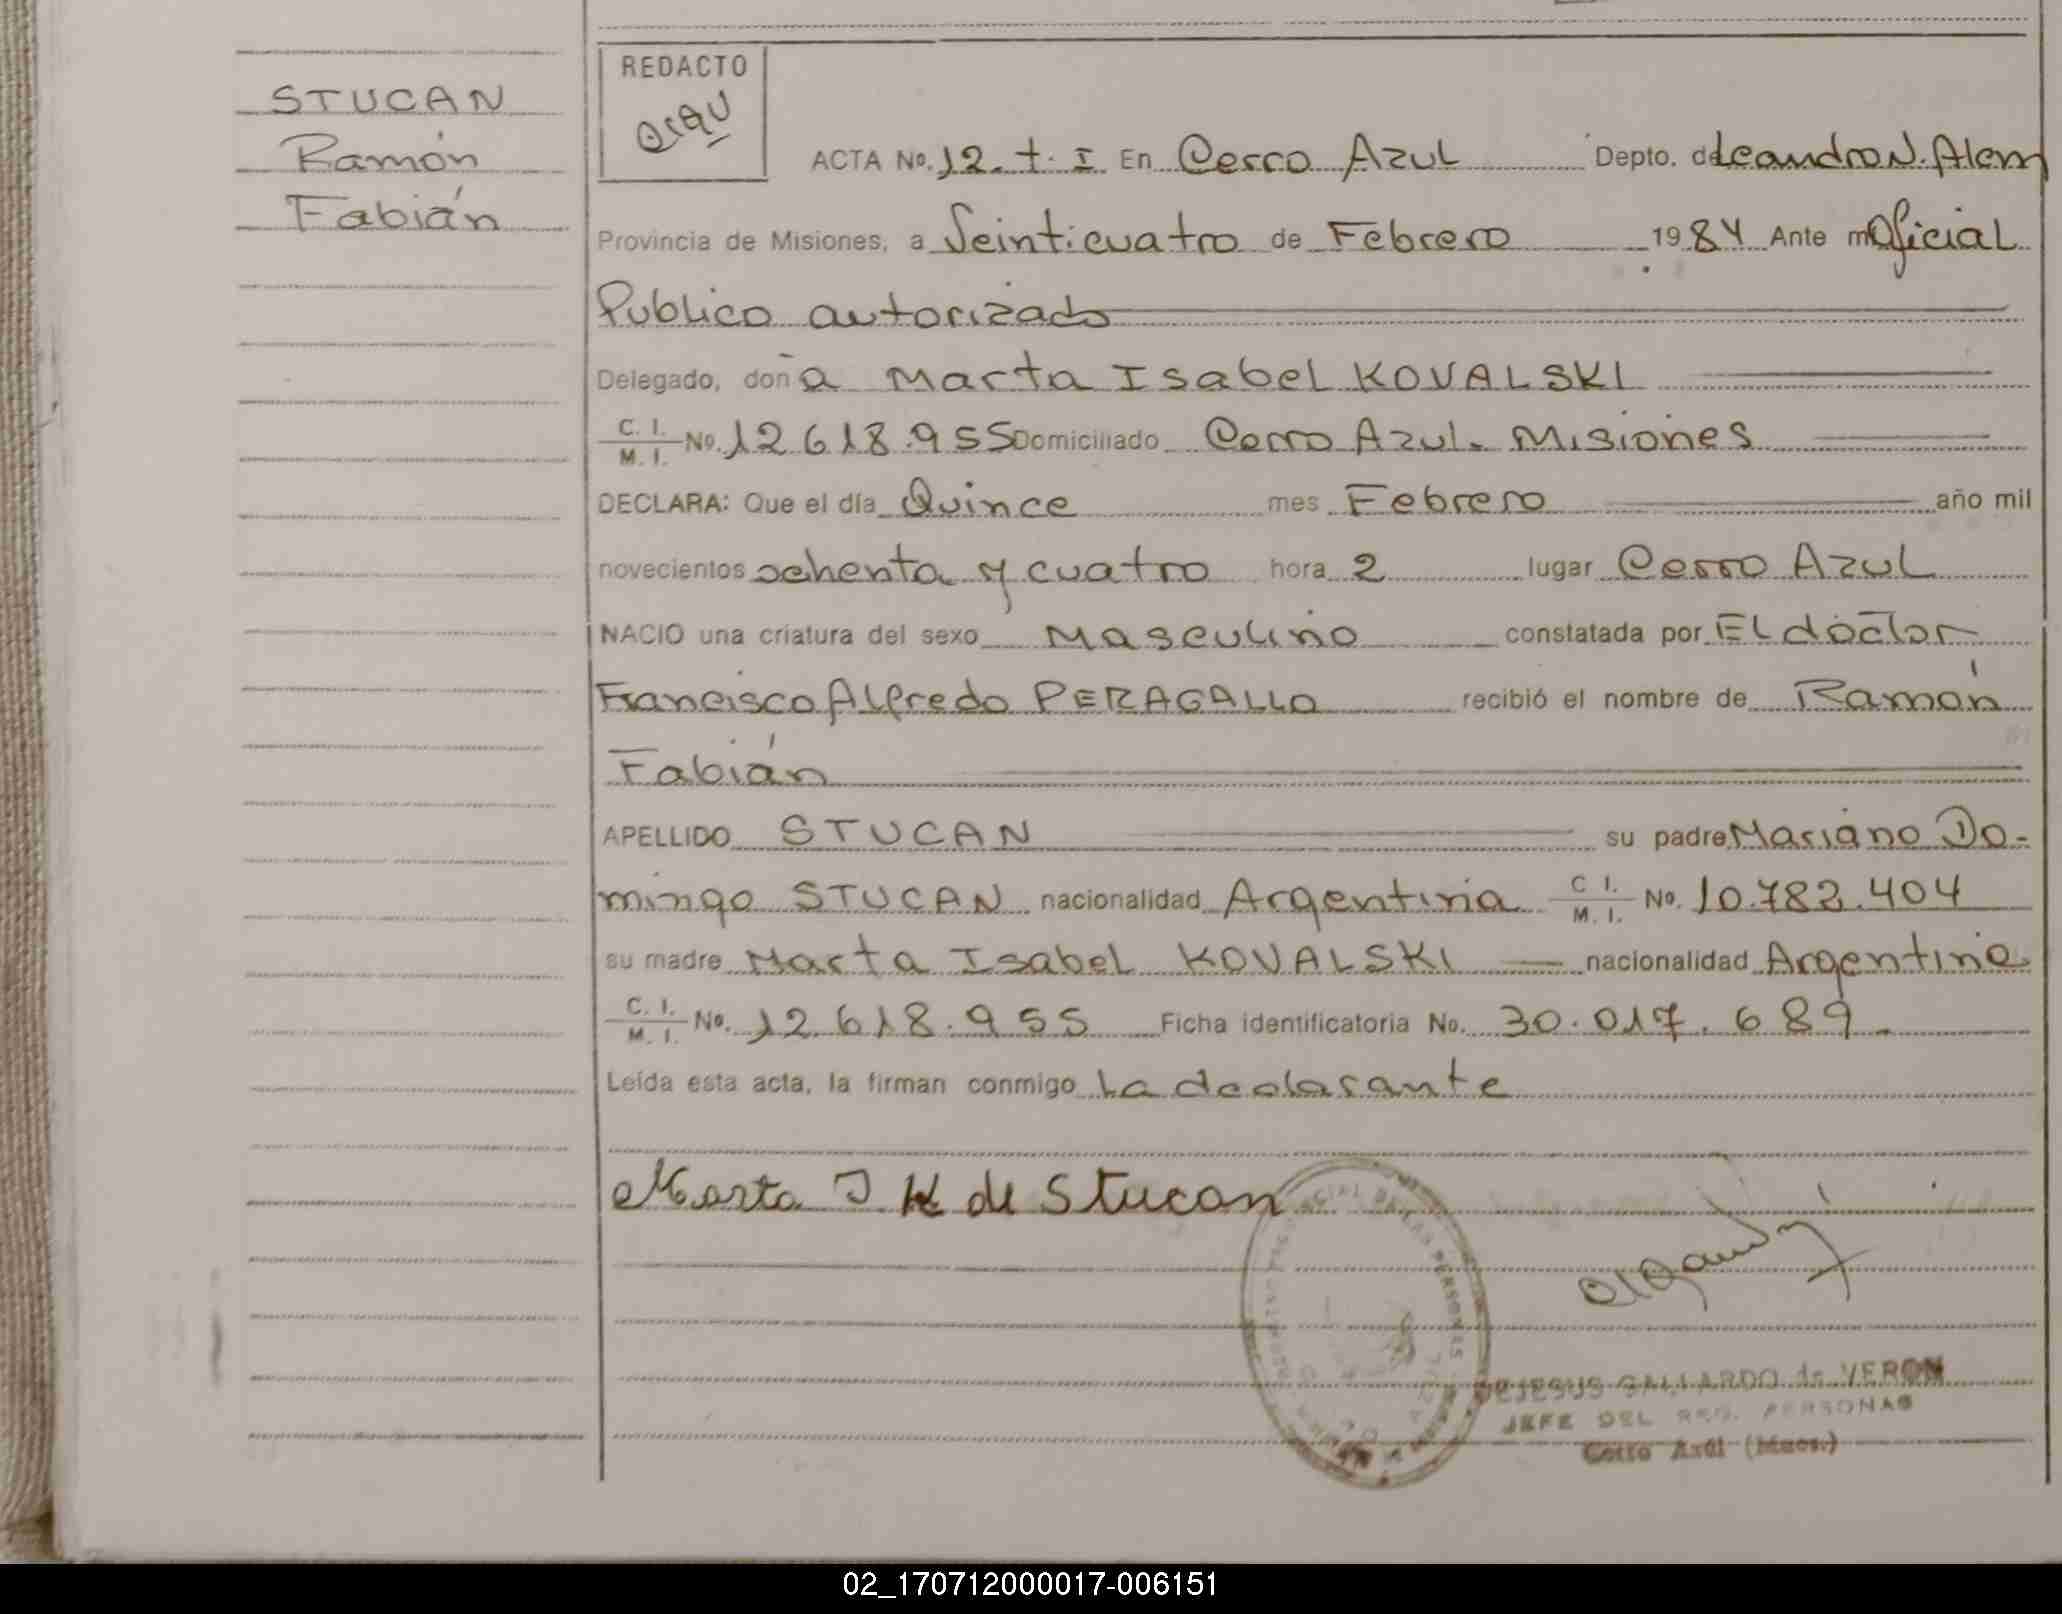 STUCAN
Ramón
Fabián
REDACTO
ACTA No. 12 t. I En Cerro Azul Depto. de Leandro N. Alem
Provincia de Misiones, a Veinticuatro de Febrero 1984 Ante mí Oficial
Publico autorizado
Delegado, doña Marta Isabel KOVALSKI
C. I. M. I. No. 12.618.955 Domiciliado Cerro Azul. Misiones
DECLARA: Que el día Quince mes Febrero año mil
novecientos ochenta y cuatro hora 2 lugar Cerro Azul
NACIO una criatura del sexo Masculino constatada por El doctor
Francisco Alfredo PERAGALLO recibió el nombre de Ramón
Fabián
APELLIDO STUCAN su padre Mariano Do-
mingo STUCAN nacionalidad Argentina C I. M. I. No. 10.782.404
su madre Marta Isabel KOVALSKI nacionalidad Argentina
C. I. M. I. No. 12.618.955 Ficha identificatoria No. 30.017.689.
Leída esta acta, la firman conmigo La declarante
Marta I K de Stucan
DE JESUS GALLARDO de VERON
JEFE DEL REG. PERSONAS
Cerro Azul (Mnes.)
02_170712000017-006151